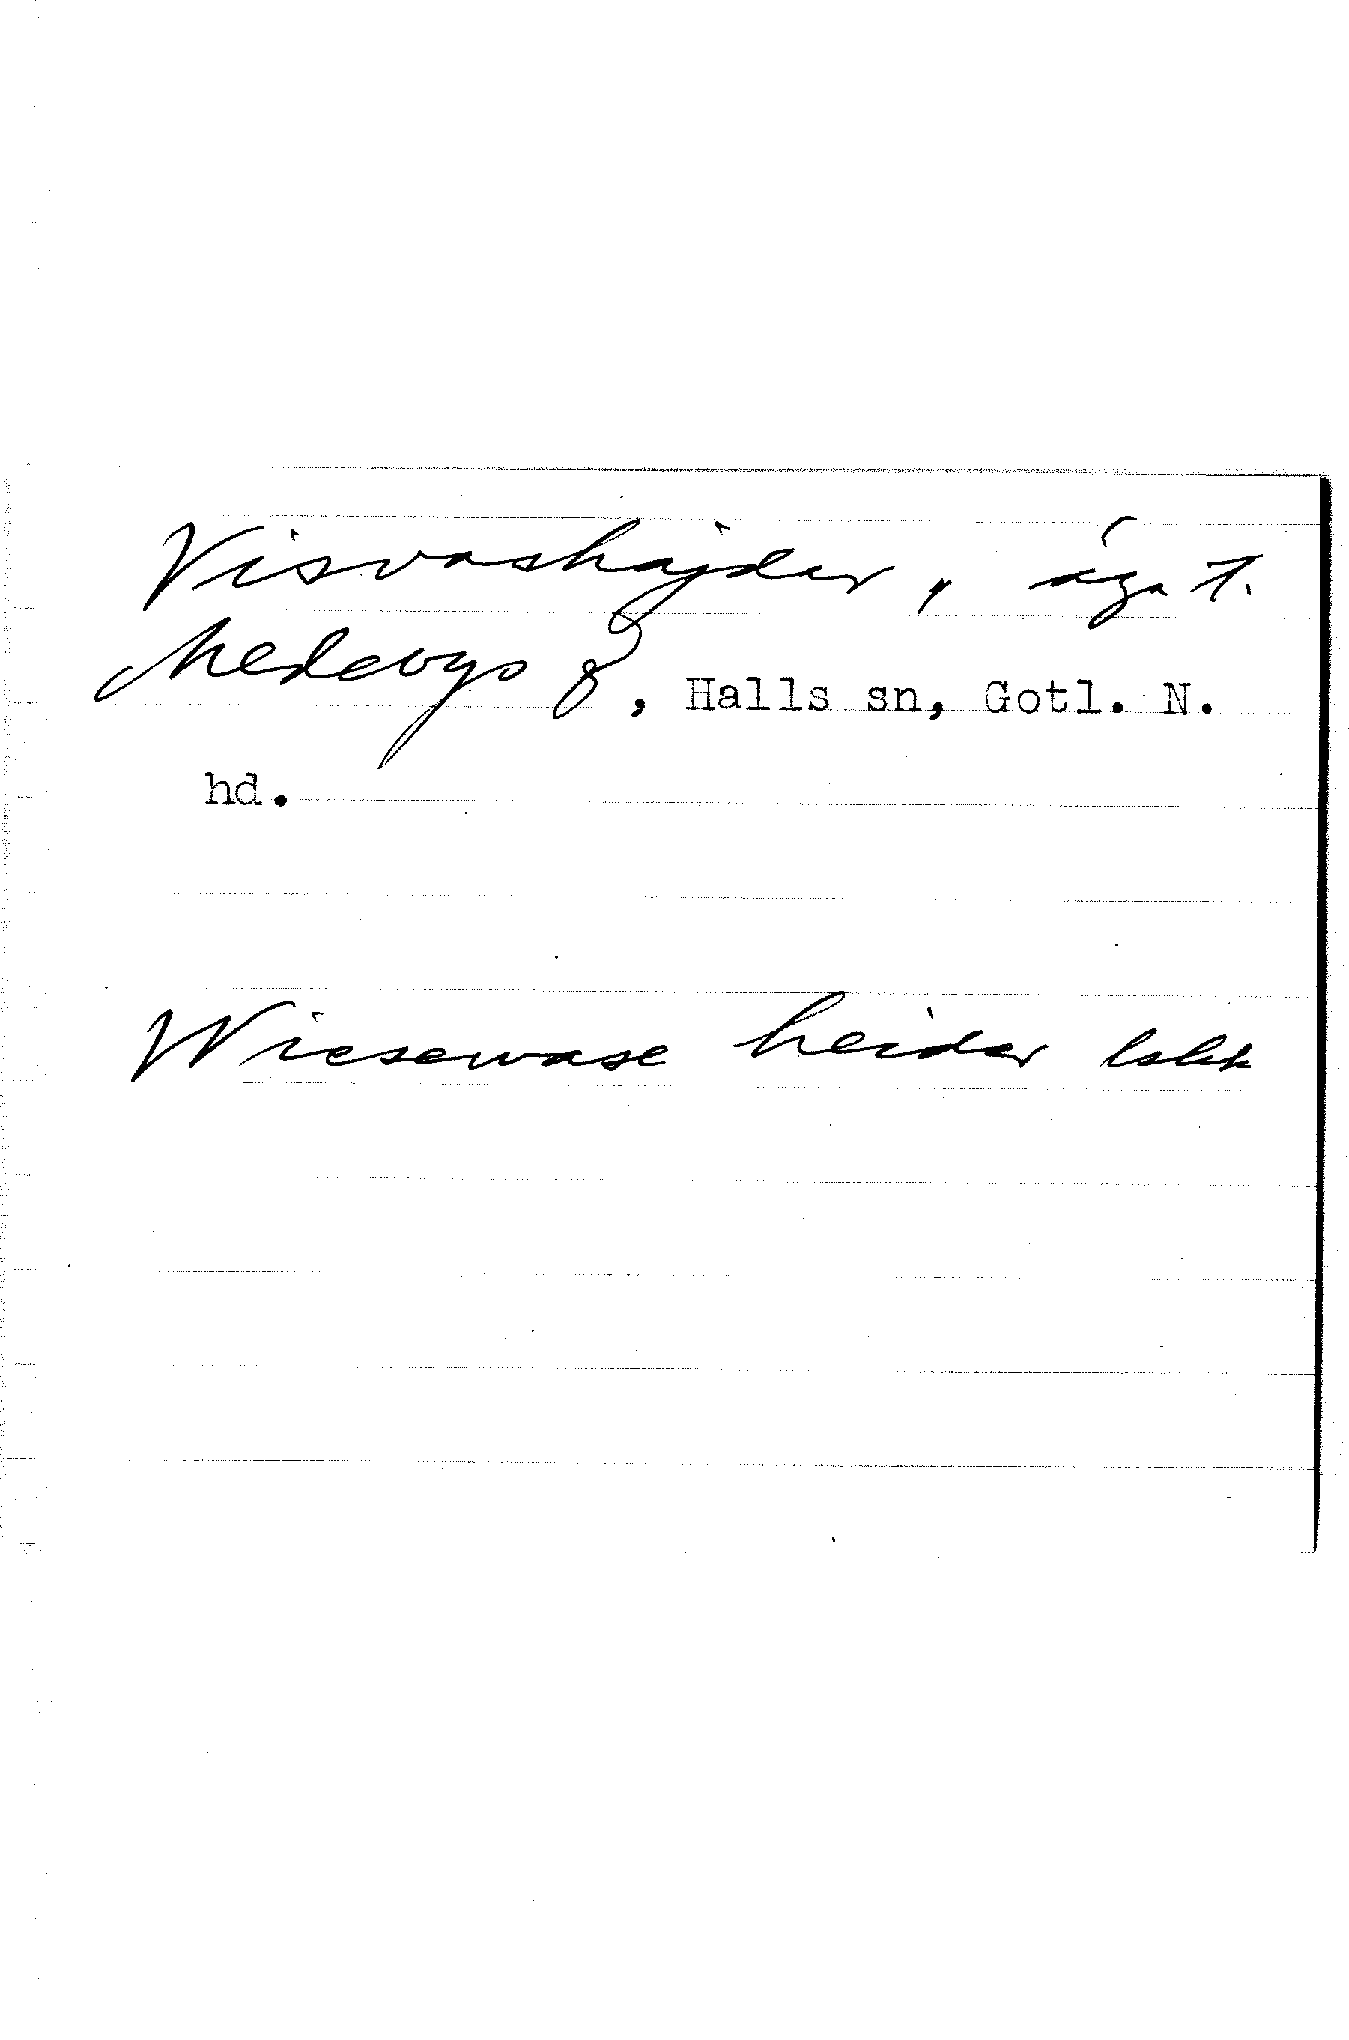 Visvashajder, äga t.
Medebys &, Halls sn, Gotl. N.
hd.
Wiesewase heider